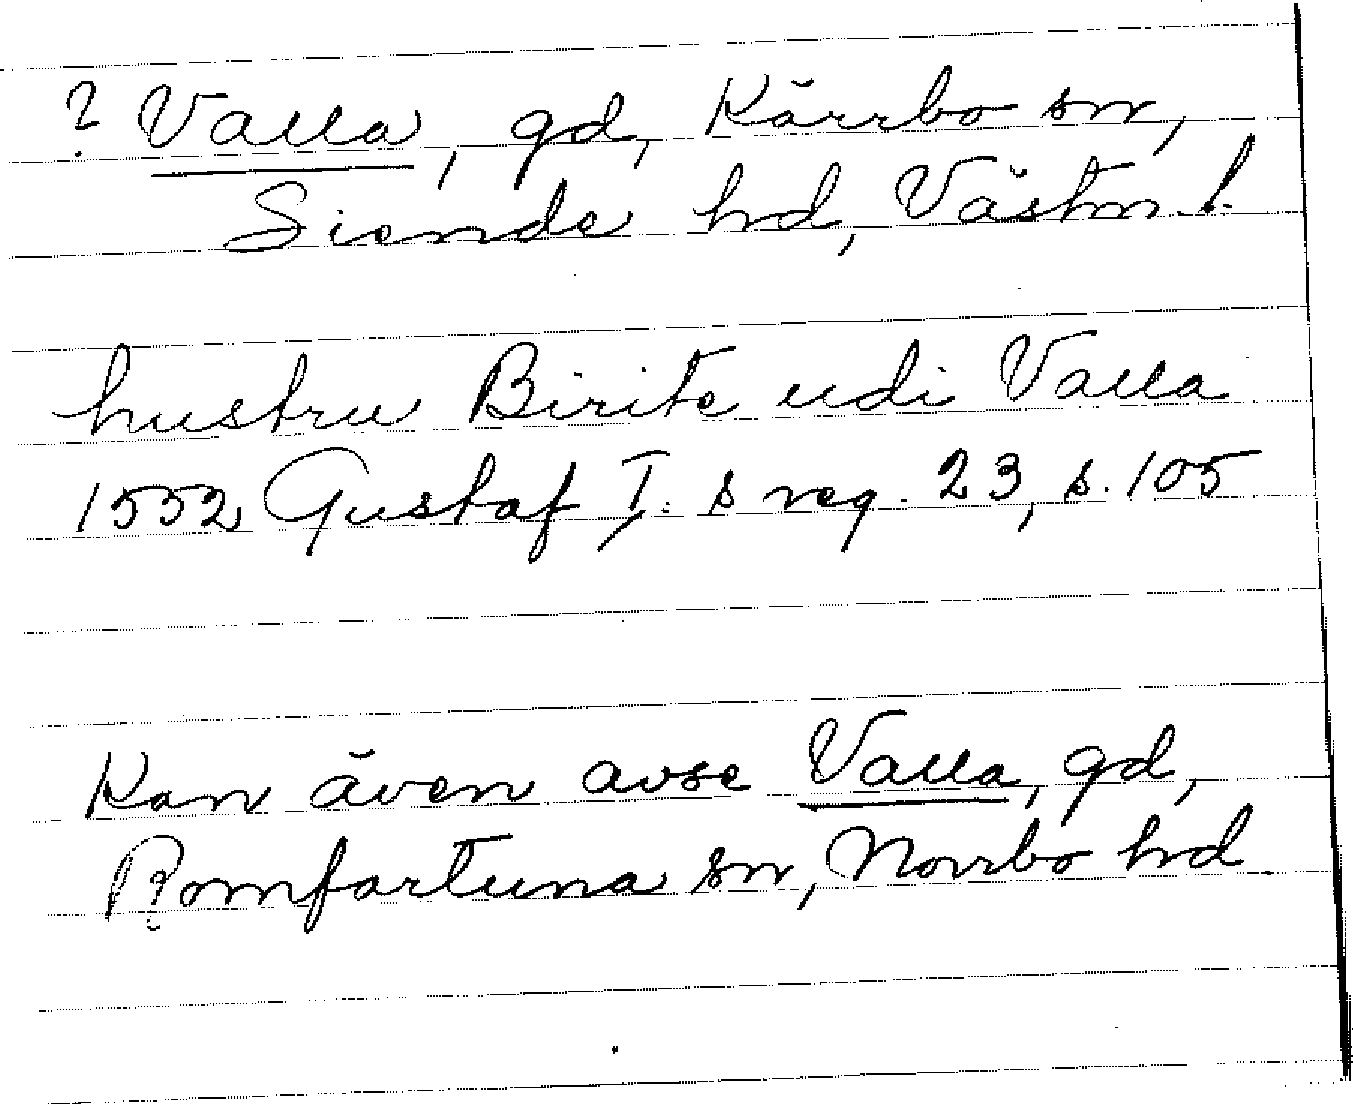 ? Valla, gd, Kärrbo sn,
Siende hd, Västm. l.
hustru Birite udi Valla
1552 Gustaf I:s reg. 23, s. 105
Kan även avse Valla, gd,
Romfartuna sn, Norrbo hd